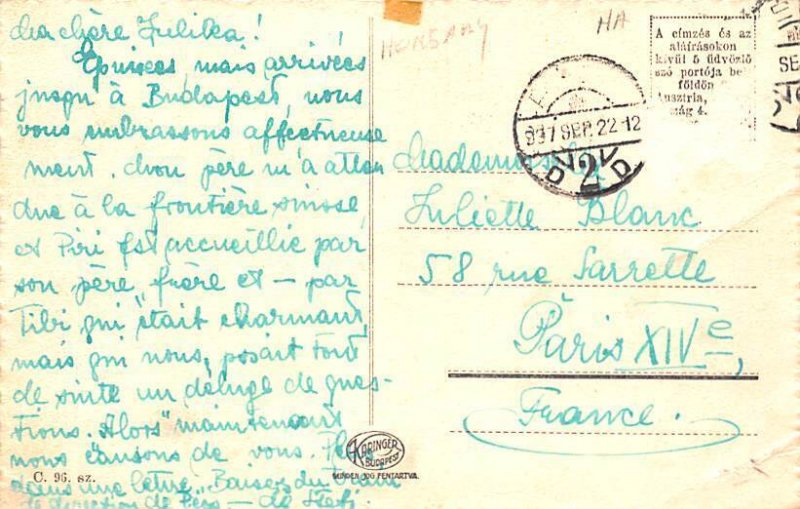 Ma chère Julika!
Epuisées, mais arrivées
jusqu'à Budapest, nous
vous embrassons affectueuse
ment. Mon père m'a atten
due à la frontière suisse,
et Piri fut accueillie par
son père, frère et — par
Tibi qui était charmant,
mais qui nous posait tout
de suite un déluge de ques-
tions. Alors maintenant
nous causons de vous. Plus
dans une lettre. Baisers du train
de direction de Pécs — de Stefi.
C. 96. sz.
HUNGARY
HA
A címzés és az
aláírásokon
kívül 5 üdvözlő
szó portója bel
földön
Ausztria,
szág 4.
937 SEP. 22-12
2
D D
SE
Mademoiselle
Juliette Blanc
58 rue Sarrette
Paris XIVe,
France.
KARINGER
BUDAPEST
MINDEN JOG FENTARTVA.